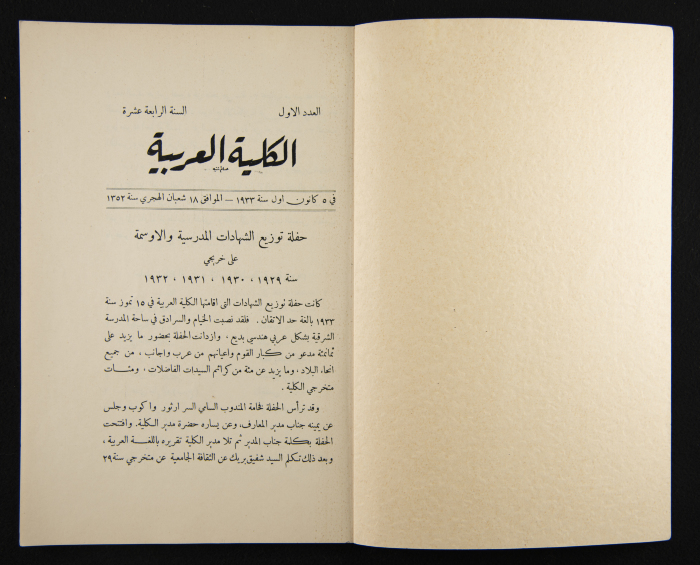 العدد الاول السنة الرابعة عشرة
الكلية العربية
في ٥ كانون اول سنة ١٩٣٣ — الموافق ١٨ شعبان الهجري سنة ١٣٥٢
حفلة توزيع الشهادات المدرسية والاوسمة
على خريجي
سنة ١٩٢٩ ، ١٩٣٠ ، ١٩٣١ ، ١٩٣٢
كانت حفلة توزيع الشهادات التي اقامتها الكلية العربية في ١٥ تموز سنة
١٩٣٣ بالغة حد الاتقان . فلقد نصبت الخيام والسرادق في ساحة المدرسة
الشرقية بشكل عربي هندسي بديع ، وازدانت الحفلة بحضور ما يزيد على
ثمانمئة مدعو من كبار القوم واعيانهم من عرب واجانب ، من جميع
انحاء البلاد ، وما يزيد عن مئة من كرائم السيدات الفاضلات ، ومئات
متخرجي الكلية .
وقد ترأس الحفلة فخامة المندوب السامي السر ارثور واكوب وجلس
عن يمينه جناب مدير المعارف، وعن يساره حضرة مدير الكلية. وافتتحت
الحفلة بكلمة جناب المدير ثم تلا مدير الكلية تقريره باللغة العربية ،
وبعد ذلك تكلم السيد شفيق بريك عن الثقافة الجامعية عن متخرجي سنة ٢٩